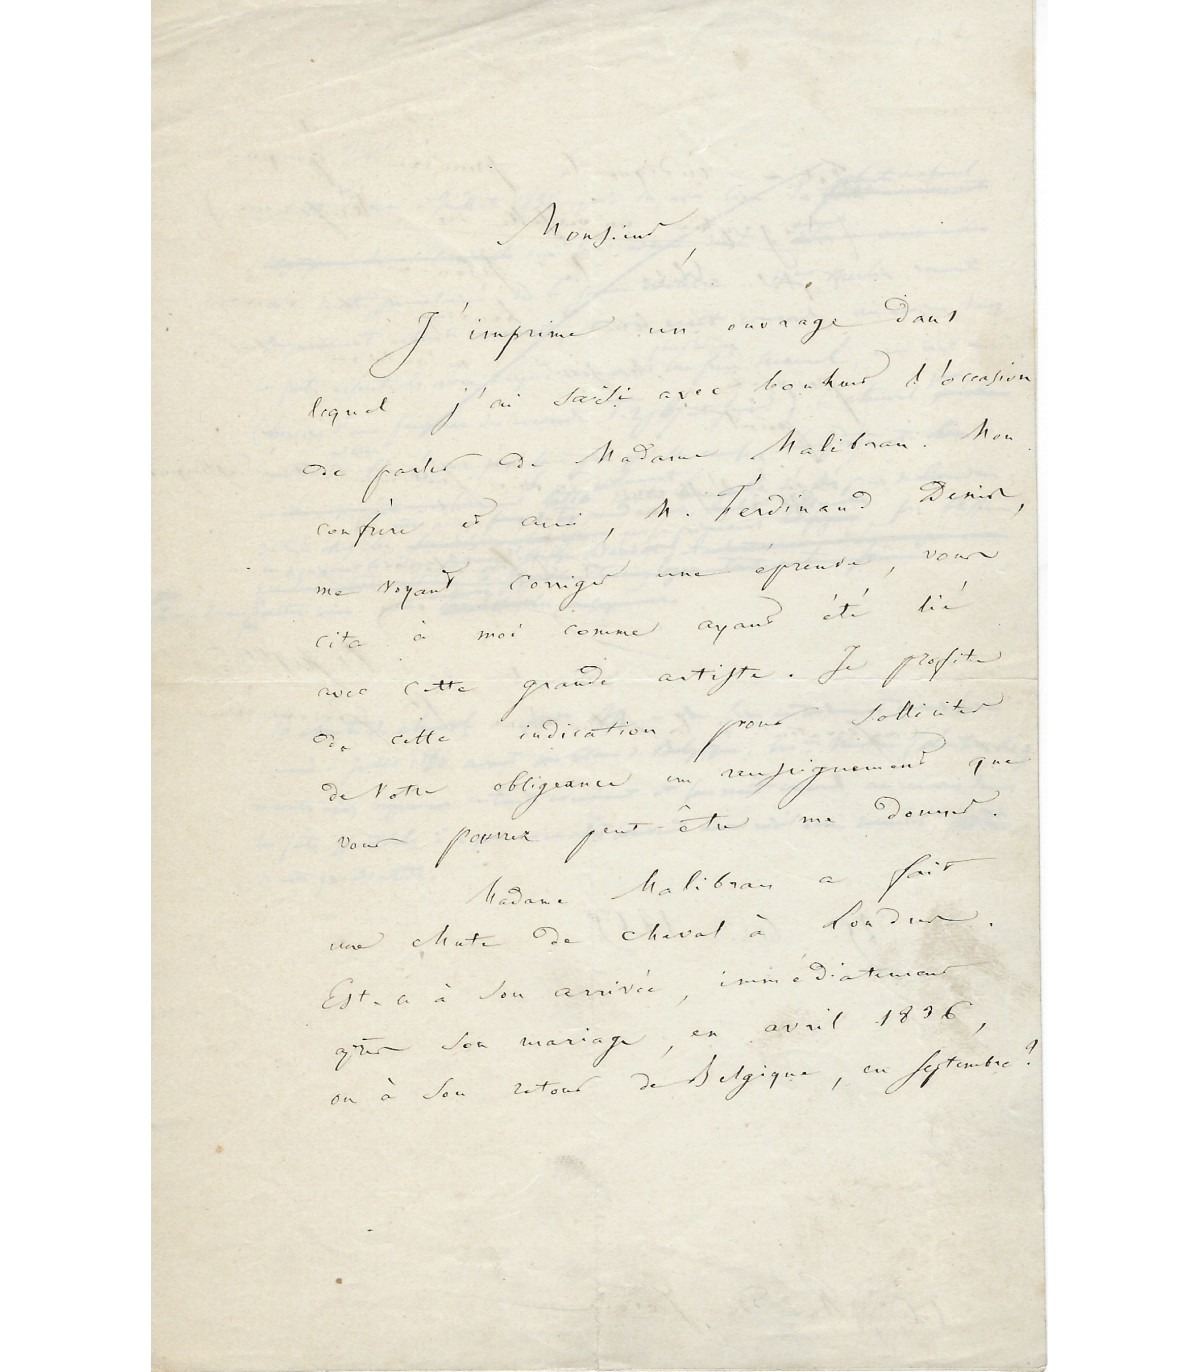 Monsieur,
J'imprime un ouvrage dans
lequel j'ai saisi avec bonheur l'occasion
de parler de Madame Malibran. Mon
confrère et ami, M. Ferdinand Denis,
me voyant corriger une épreuve, vous
cita à moi comme ayant été lié
avec cette grande artiste. Je profite
de cette indication pour solliciter
de votre obligeance un renseignement que
vous pourrez peut-être me donner.
Madame Malibran a fait
une chute de cheval à Londres.
Est-ce à son arrivée, immédiatement
après son mariage, en avril 1836,
ou à son retour de Belgique, en septembre?